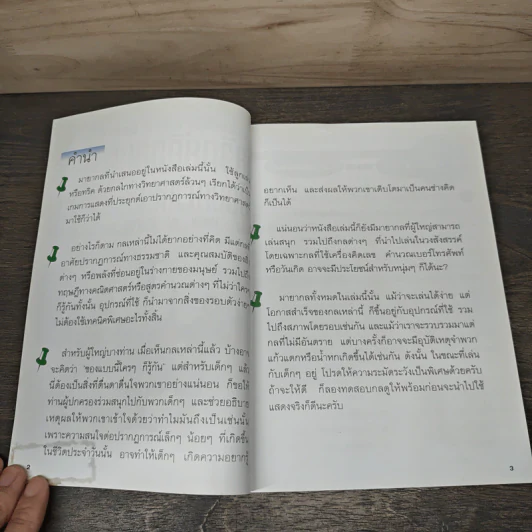 คำนำ
มายากลที่นำเสนออยู่ในหนังสือเล่มนี้นั้น ใช้ลูกเล่น
หรือทริค ด้วยกลไกทางวิทยาศาสตร์ล้วนๆ เรียกได้ว่าเป็น
เกมการแสดงที่ประยุกต์เอาปรากฏการณ์ทางวิทยาศาสตร์
มาใช้ก็ว่าได้
อย่างไรก็ตาม กลเหล่านี้ไม่ได้ยากอย่างที่คิด มีแต่กลที่
อาศัยปรากฏการณ์ทางธรรมชาติ และคุณสมบัติของสิ่ง
ต่างๆ หรือพลังที่ซ่อนอยู่ในร่างกายของมนุษย์ รวมไปถึง
ทฤษฎีทางคณิตศาสตร์หรือสูตรคำนวณต่างๆ ที่ไม่ว่าใคร
ก็รู้กันทั้งนั้น อุปกรณ์ที่ใช้ ก็นำมาจากสิ่งของรอบตัวง่ายๆ
ไม่ต้องใช้เทคนิคพิเศษอะไรทั้งสิ้น
สำหรับผู้ใหญ่บางท่าน เมื่อเห็นกลเหล่านี้แล้ว บ้างอาจ
จะคิดว่า 'ของแบบนี้ใครๆ ก็รู้กัน' แต่สำหรับเด็กๆ แล้ว
นี่ต้องเป็นสิ่งที่ตื่นตาตื่นใจพวกเขาอย่างแน่นอน ก็ขอให้
ท่านผู้ปกครองร่วมสนุกไปกับพวกเด็กๆ และช่วยอธิบาย
เหตุผลให้พวกเขาเข้าใจด้วยว่าทำไมมันถึงเป็นเช่นนั้น
เพราะความสนใจต่อปรากฏการณ์เล็กๆ น้อยๆ ที่เกิดขึ้น
ในชีวิตประจำวันนั้น อาจทำให้เด็กๆ เกิดความอยากรู้
2
อยากเห็น และส่งผลให้พวกเขาเติบโตมาเป็นคนช่างคิด
ก็เป็นได้
แน่นอนว่าหนังสือเล่มนี้ก็ยังมีมายากลที่ผู้ใหญ่สามารถ
เล่นสนุก รวมไปถึงกลต่างๆ ที่นำไปเล่นในวงสังสรรค์
โดยเฉพาะกลที่ใช้เครื่องคิดเลข คำนวณเบอร์โทรศัพท์
หรือวันเกิด อาจจะมีประโยชน์สำหรับหนุ่มๆ ก็ได้นะ?
มายากลทั้งหมดในเล่มนี้นั้น แม้ว่าจะเล่นได้ง่าย แต่
โอกาสสำเร็จของกลก็นั้น ก็ขึ้นอยู่กับอุปกรณ์ที่ใช้ รวม
ไปถึงสภาพโดยรอบเช่นกัน และแม้ว่าเราจะรวบรวมมาแต่
กลที่ไม่มีอันตราย แต่บางครั้งก็อาจจะมีอุบัติเหตุจำพวก
แก้วแตกหรือน้ำหกเกิดขึ้นได้เช่นกัน ดังนั้น ในขณะที่เล่น
กับเด็กๆ อยู่ โปรดให้ความระมัดระวังเป็นพิเศษด้วยครับ
ถ้าจะให้ดี ก็ลองทดสอบกลดูให้พร้อมก่อนจะนำไปใช้
แสดงจริงก็ดีนะครับ
3